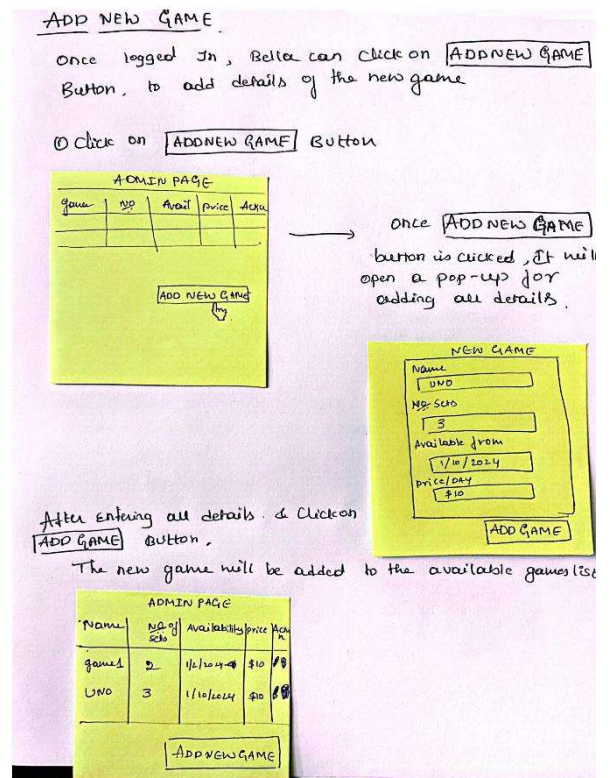 ADD NEW GAME
Once logged In, Bella can click on ADD NEW GAME
Button, to add details of the new game
① Click on ADD NEW GAME Button
ADMIN PAGE
game NO Avail price
ADD NEW GAME
once ADD NEW GAME
button is clicked, It will
open a pop-up for
adding all details.
NEW GAME
Name
UNO
NO. Sets
3
Available from
1/10/2024
price/DAY
$10
ADD GAME
After entering all details. & Click on
ADD GAME Button,
The new game will be added to the available games list
ADMIN PAGE
Name NO of sets Availability price
games 2 $10
UNO 3 1/10/2024 $10
ADD NEW GAME